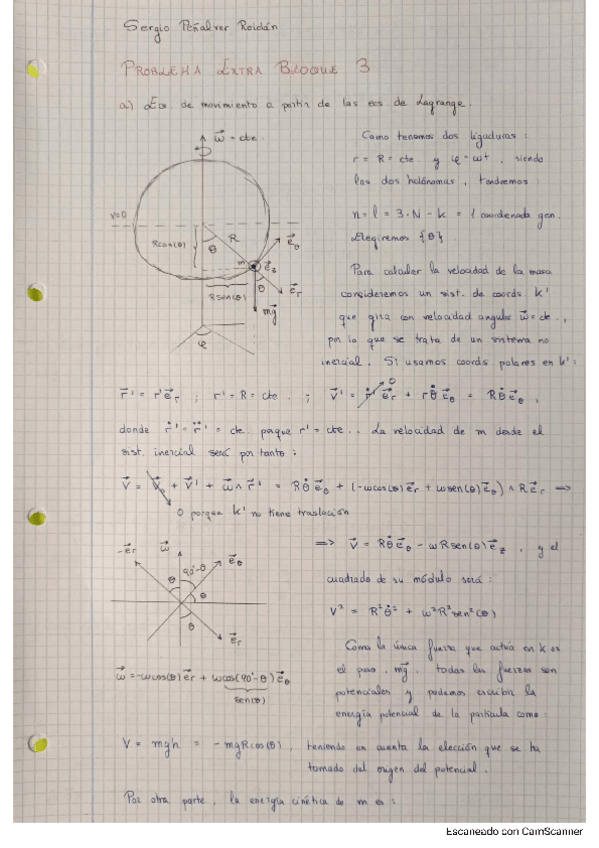 Sergio Peñalver Roldán
PROBLEMA EXTRA BLOQUE 3
a) Ecs. de movimiento a partir de las ecs de Lagrange.
ω⃗ = cte.
Como tenemos dos ligaduras:
r = R = cte. y φ = ωt, siendo
las dos holónomas, tendremos:
V=0
n = l = 3·N - k = 1 coordenada gen.
Elegiremos {θ}.
Rcos(θ)
R
θ
e⃗θ
m
e⃗z
Rsen(θ)
θ
e⃗r
mg⃗
φ
Para calcular la velocidad de la masa
consideremos un sist. de coords k'
que gira con velocidad angular ω⃗=cte.,
por lo que se trata de un sistema no
inercial. Si usamos coords polares en k':
r⃗' = r'e⃗r ; r' = R = cte. ; v⃗' = ṙ'e⃗r + rθ̇e⃗θ = Rθ̇e⃗θ,
0
donde ṙ' = r̈' = cte. porque r' = cte.. La velocidad de m desde el
sist. inercial será por tanto:
v⃗ = v⃗o + v⃗' + ω⃗ ∧ r⃗' = Rθ̇e⃗θ + (-ωcos(θ)e⃗r + ωsen(θ)e⃗θ) ∧ Re⃗r ⟹
0 porque k' no tiene traslación
⟹ v⃗ = Rθ̇e⃗θ - ωRsen(θ)e⃗z, y el
-e⃗r
ω⃗
e⃗θ
90°-θ
θ
θ
θ
e⃗r
cuadrado de su módulo será:
V² = R²θ̇² + ω²R²sen²(θ)
Como la única fuerza que actúa en k es
el peso, mg⃗, todas las fuerzas son
potenciales y podemos escribir la
energía potencial de la partícula como:
ω⃗ = -ωcos(θ)e⃗r + ωcos(90°-θ)e⃗θ
sen(θ)
V = mgh = -mgRcos(θ), teniendo en cuenta la elección que se ha
tomado del origen del potencial.
Por otra parte, la energía cinética de m es:
Escaneado con CamScanner